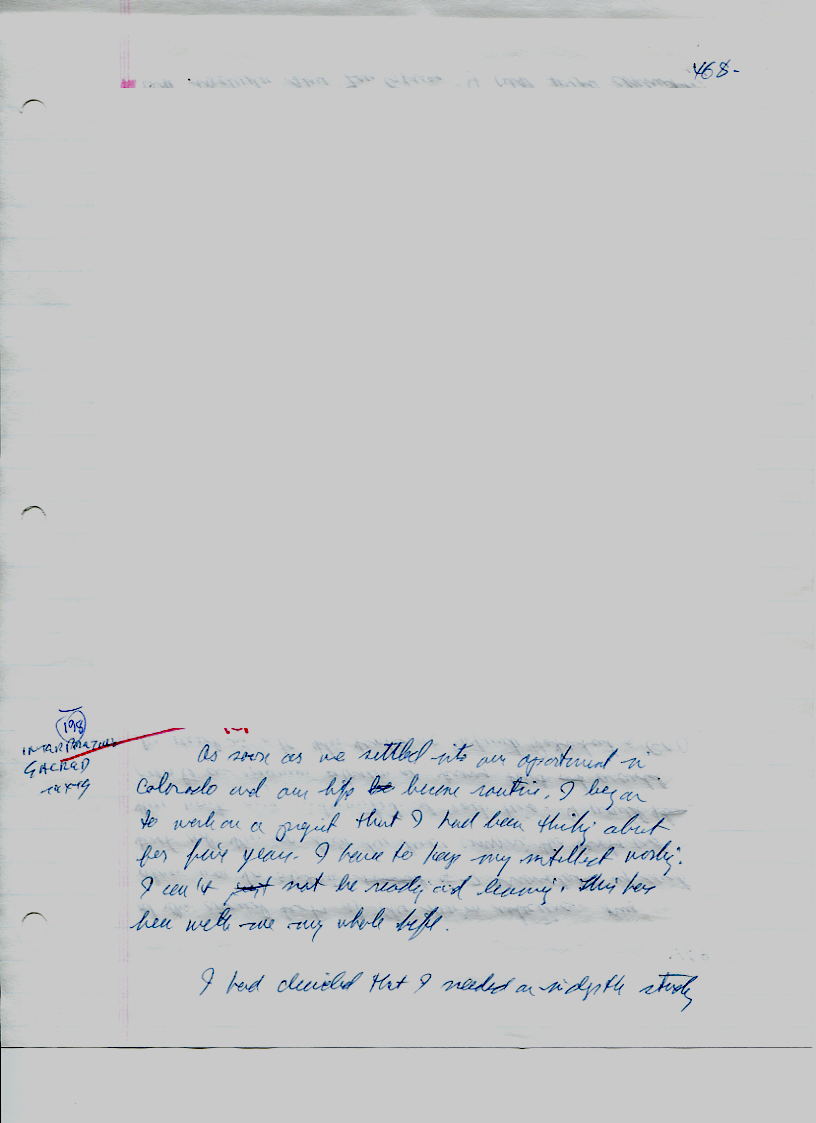 468-
198
INTERPRETING
SACRED
TEXTS
As soon as we settled into our apartment in
Colorado and our life be became routine, I began
to work on a project that I had been thinking about
for five years. I have to keep my intellect working.
I can't just not be reading and learning. This has
been with me my whole life.
I had decided that I needed an in depth study